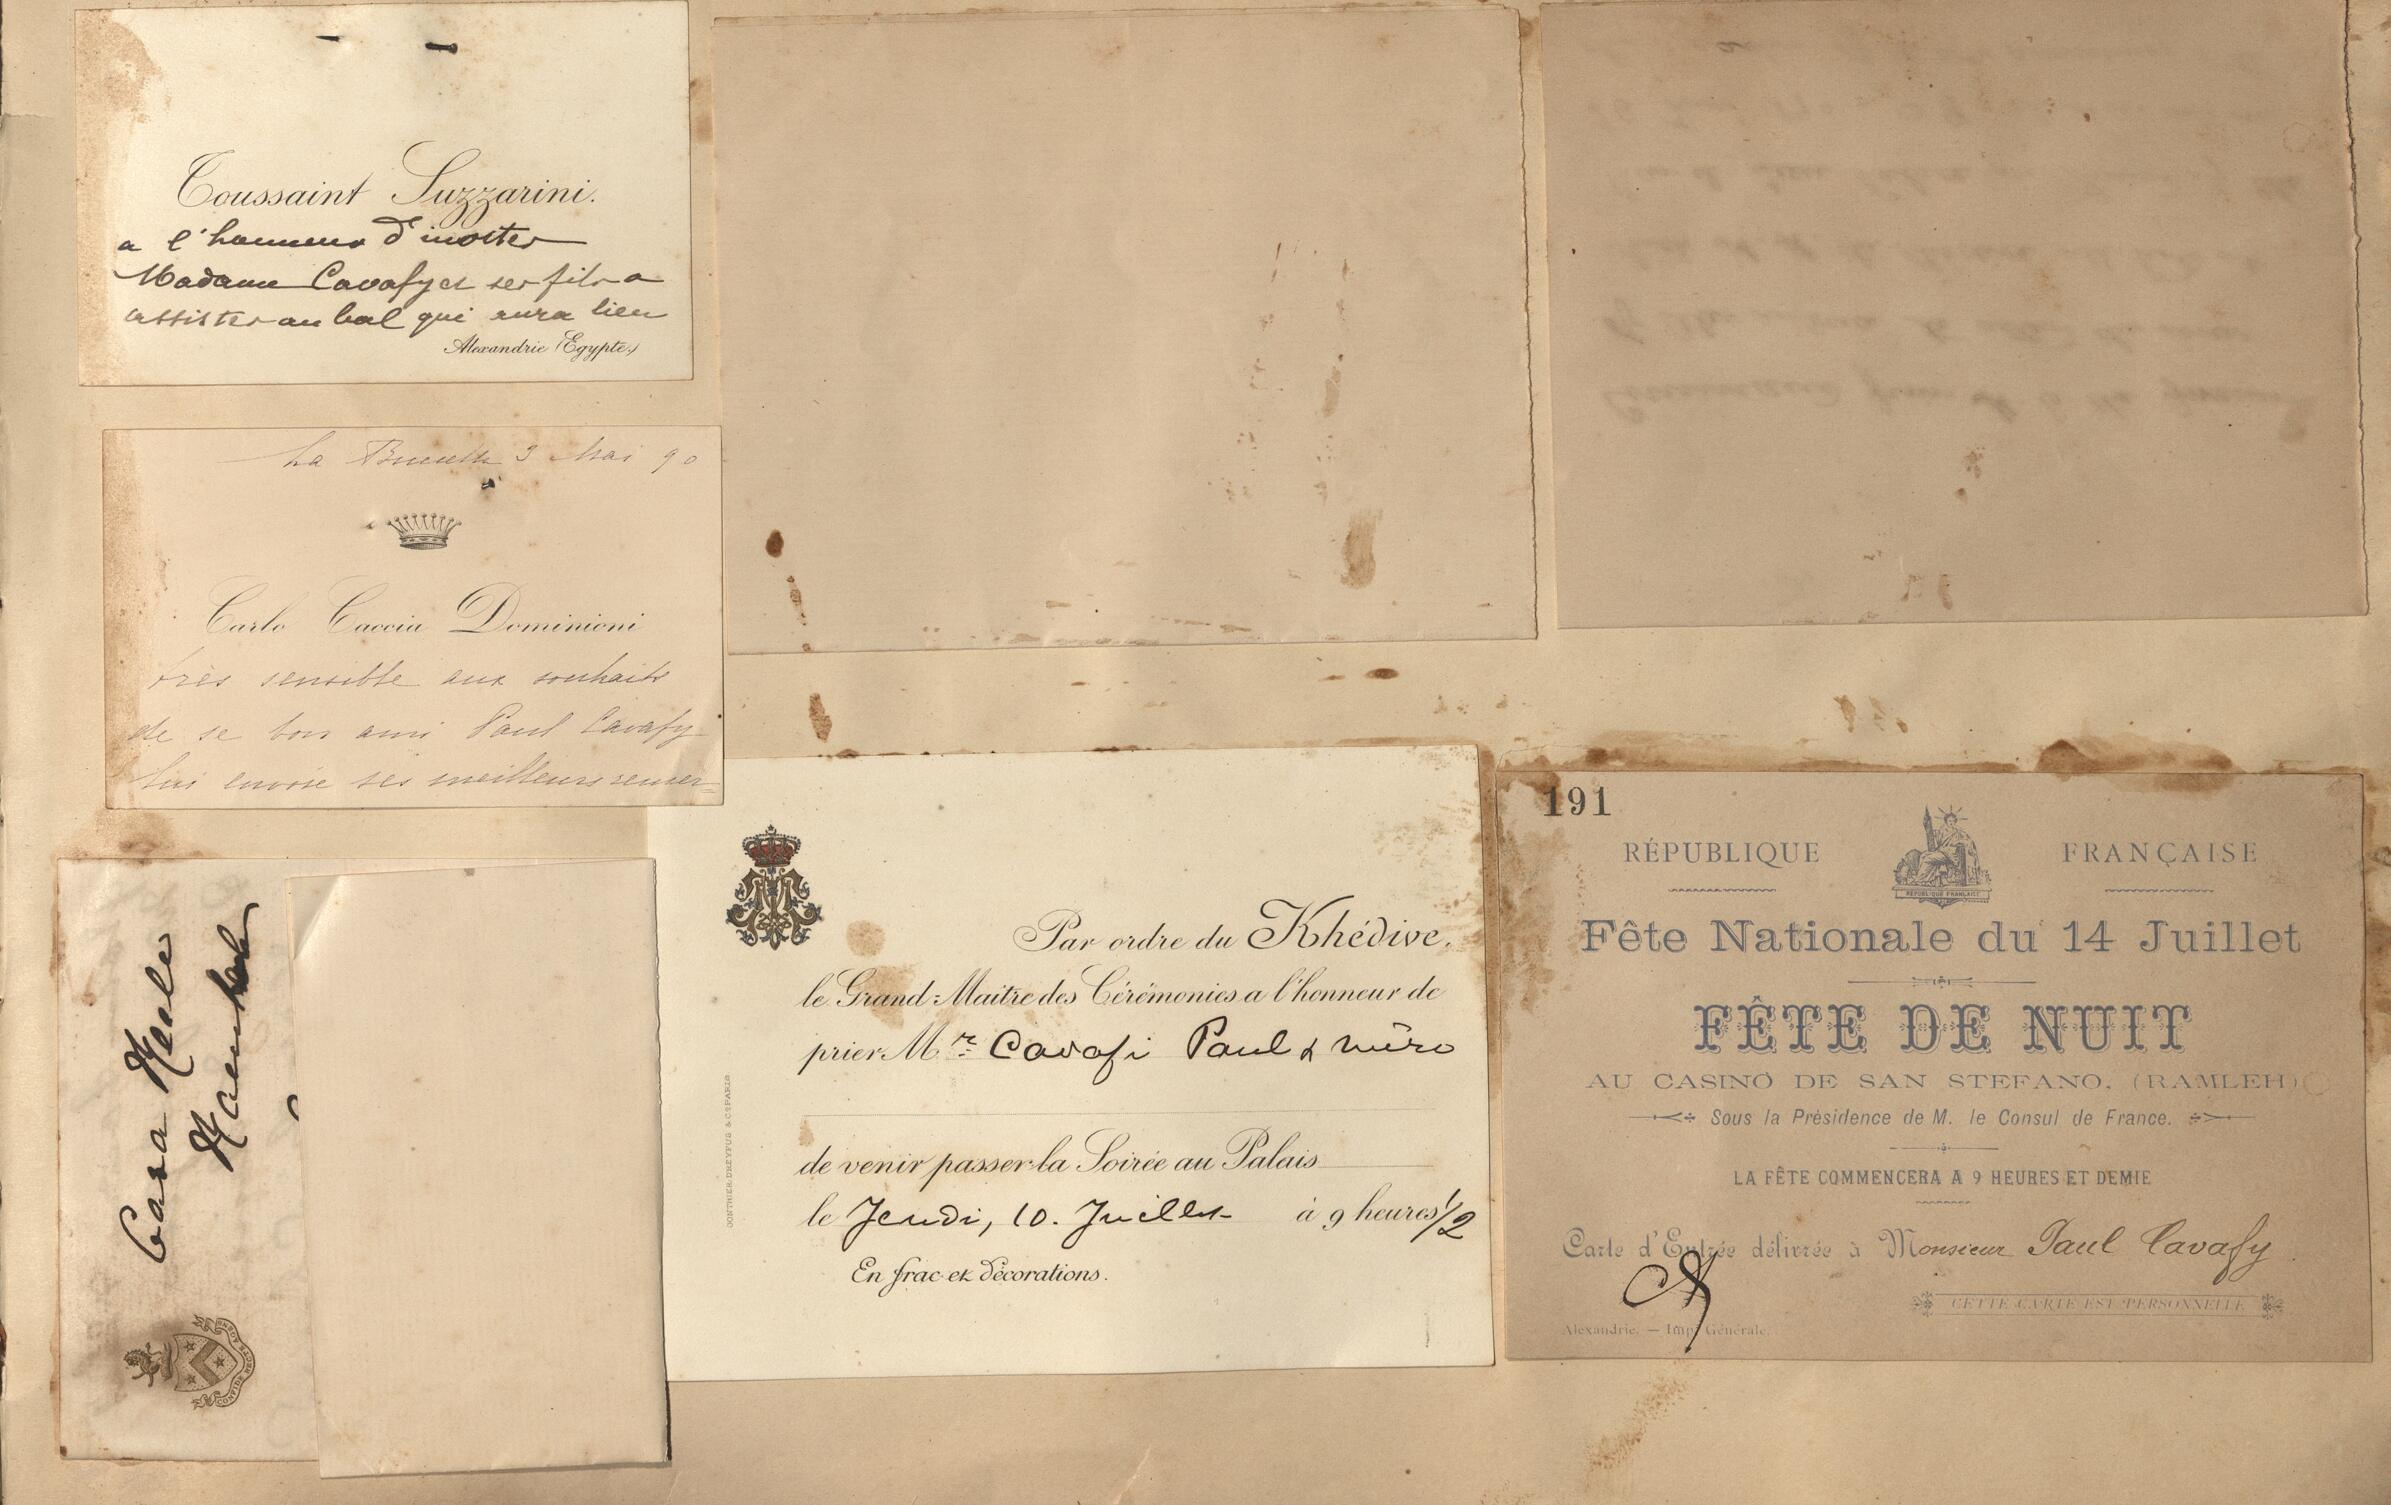 Toussaint Suzzarini.
a l'honneur d'inviter
Madame Cavafy et ses fils a
assister au bal qui aura lieu
Alexandrie (Egypte.)
La 3 Mai 90
Carlo Caccia Dominioni
très sensible aux souhaits
de se bon ami Paul Cavafy
lui envoie ses meilleurs remer=
Cara
CONFIDE RECTE AGENS
Par ordre du Khédive,
le Grand-Maître des Cérémonies a l'honneur de
prier Mr Cavafi Paul & mère
de venir passer la Soirée au Palais
le Jeudi, 10. Juillet à 9 heures 1/2
En frac et décorations.
GONTHIER DREYFUS & Cº PARIS
191
RÉPUBLIQUE FRANÇAISE
REPUBLIQUE FRANÇAISE
Fête Nationale du 14 Juillet
FÊTE DE NUIT
AU CASINO DE SAN STEFANO, (RAMLEH)
Sous la Présidence de M. le Consul de France.
LA FÊTE COMMENCERA A 9 HEURES ET DEMIE
Carte d'Entrée délivrée à Monsieur Paul Cavafy
CETTE CARTE EST PERSONNELLE
Alexandrie. — Imp. Générale.